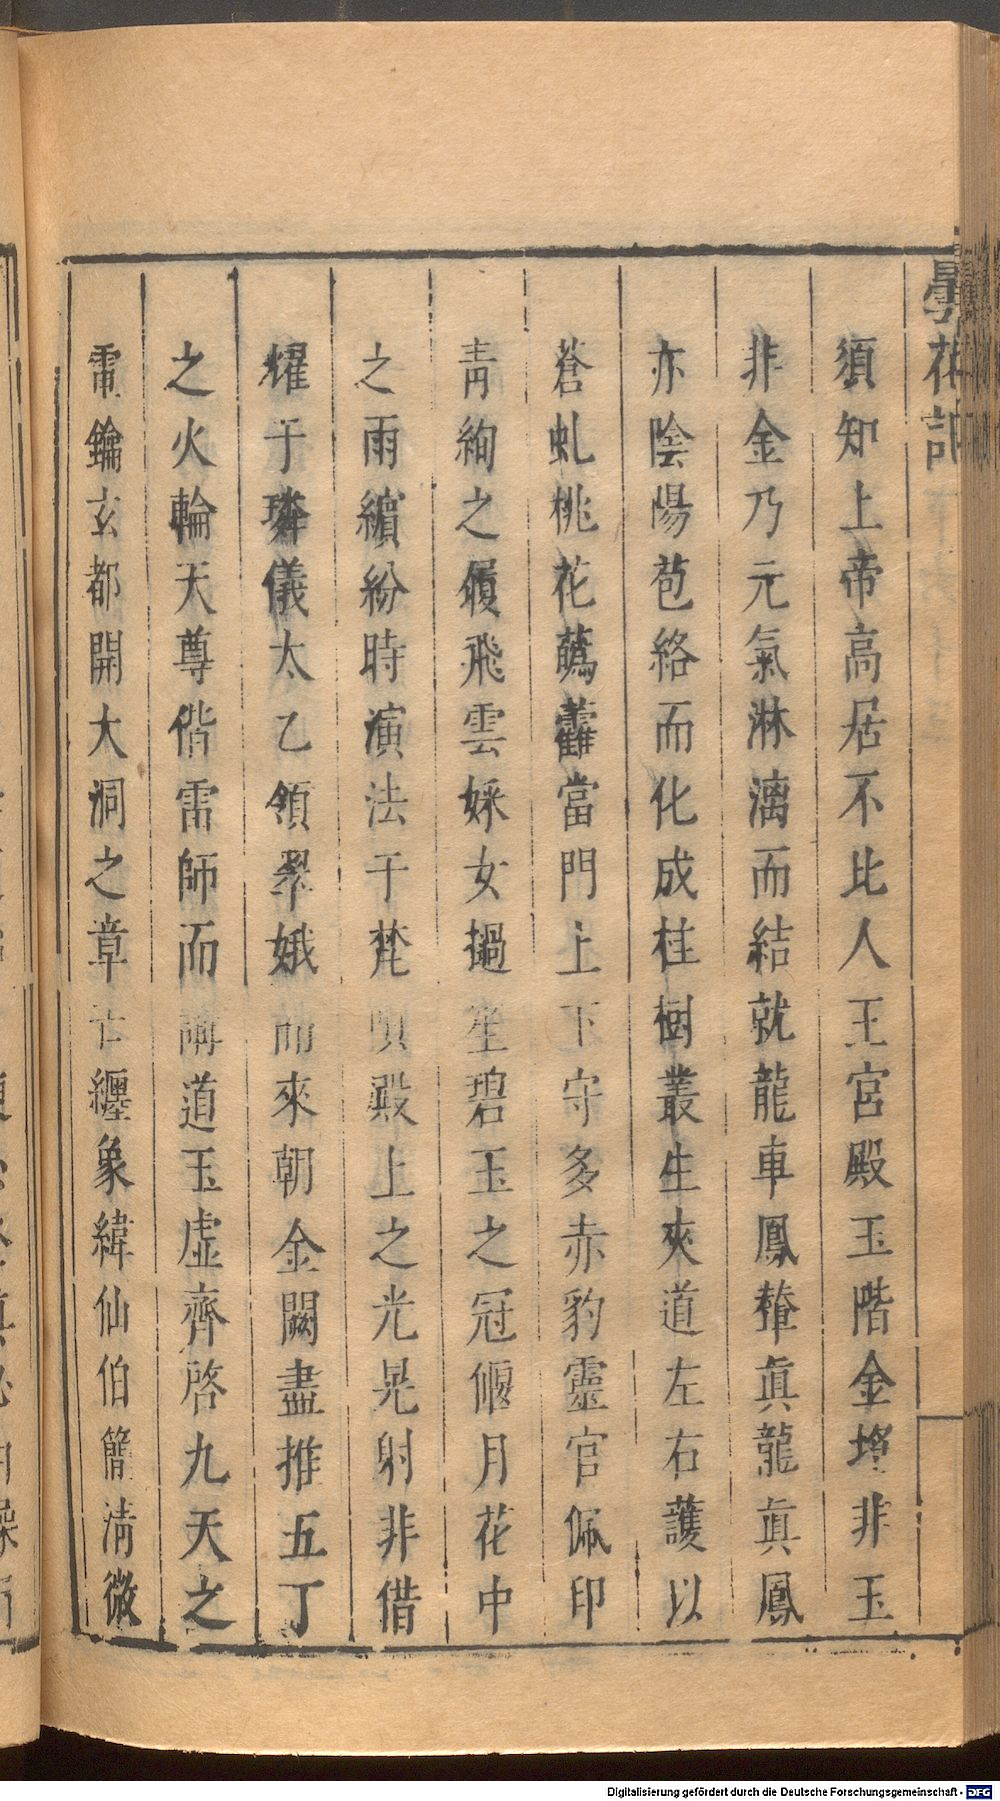 曇花記
須知上帝高居不比人王宮殿玉階金墀非玉
非金乃元氣淋漓而結就龍車鳳輦眞龍眞鳳
亦陰陽苞絡而化成桂樹叢生夾道左右護以
蒼虬桃花藨虇當門上下守多赤豹靈官佩印
靑絢之履飛雲婇女擿坐碧玉之冠偃月花中
之雨繽紛時演法于梵唄殿上之光晃射非借
耀于璘儀太乙領翠娥而來朝金闕盡推五丁
之火輪天尊偕雷師而講道玉虛齊啓九天之
電鑰玄都開大洞之章七纒象緯仙伯簡淸微
Digitalisierung gefördert durch die Deutsche Forschungsgemeinschaft - DFG